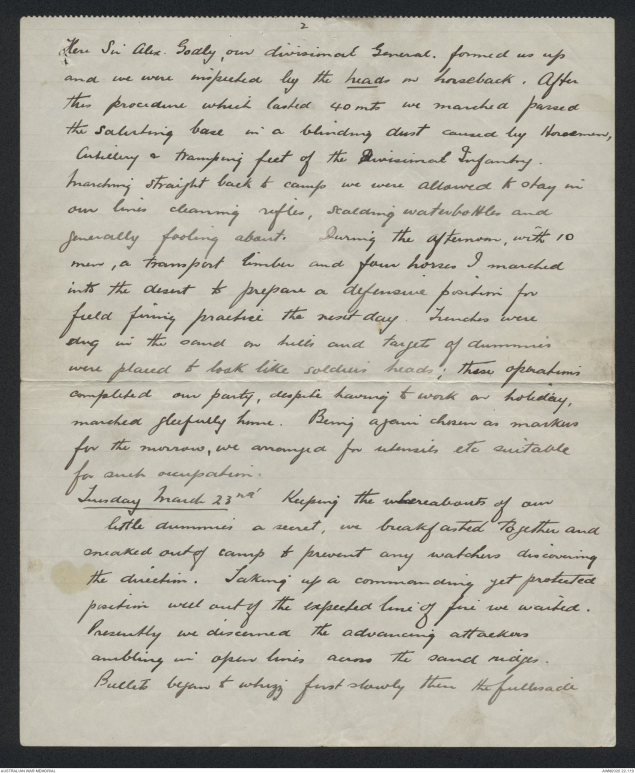 2
Here Sir Alex. Godly, our divisional General. formed us up
and we were inspected by the heads on horseback. After
this procedure which lasted 40 mts we marched passed
the saluting base in a blinding dust caused by Horsemen,
Artillery & tramping feet of the Divisional Infantry.
Marching straight back to camp we were allowed to stay in
our lines cleaning rifles, scalding waterbottles and
generally fooling about. During the afternoon, with 10
men, a transport limber and four horses I marched
into the desert to prepare a defensive position for
field firing practice the next day. Trenches were
dug in the sand on hills and targets of dummies
were placed to look like soldiers heads; these operations
completed our party, despite having to work on holiday,
marched gleefully home. Being again chosen as markers
for the morrow, we arranged for utensils etc suitable
for such occupation.
Tuesday March 23rd Keeping the whereabouts of our
little dummies a secret, we breakfasted together and
sneaked out of camp to prevent any watchers discovering
the direction. Taking up a commanding yet protected
position well out of the expected line of fire we waited.
Presently we discerned the advancing attackers
ambling in open lines across the sand ridges.
Bullets began to whizz first slowly then the fullisade
AUSTRALIAN WAR MEMORIAL